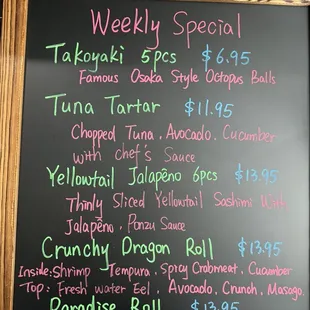 Weekly Special
Takoyaki 5pcs $6.95
Famous Osaka Style Octopus Balls
Tuna Tartar $11.95
Chopped Tuna, Avocado, Cucumber
with chef's Sauce
Yellowtail Jalapeño 6pcs $13.95
Thinly Sliced Yellowtail Sashimi With
Jalapeño, Ponzu Sauce
Crunchy Dragon Roll $13.95
Inside: Shrimp Tempura, Spicy Crabmeat, Cucumber
Top: Fresh water Eel, Avocado, Crunch, Masago.
Paradise Roll $13.95